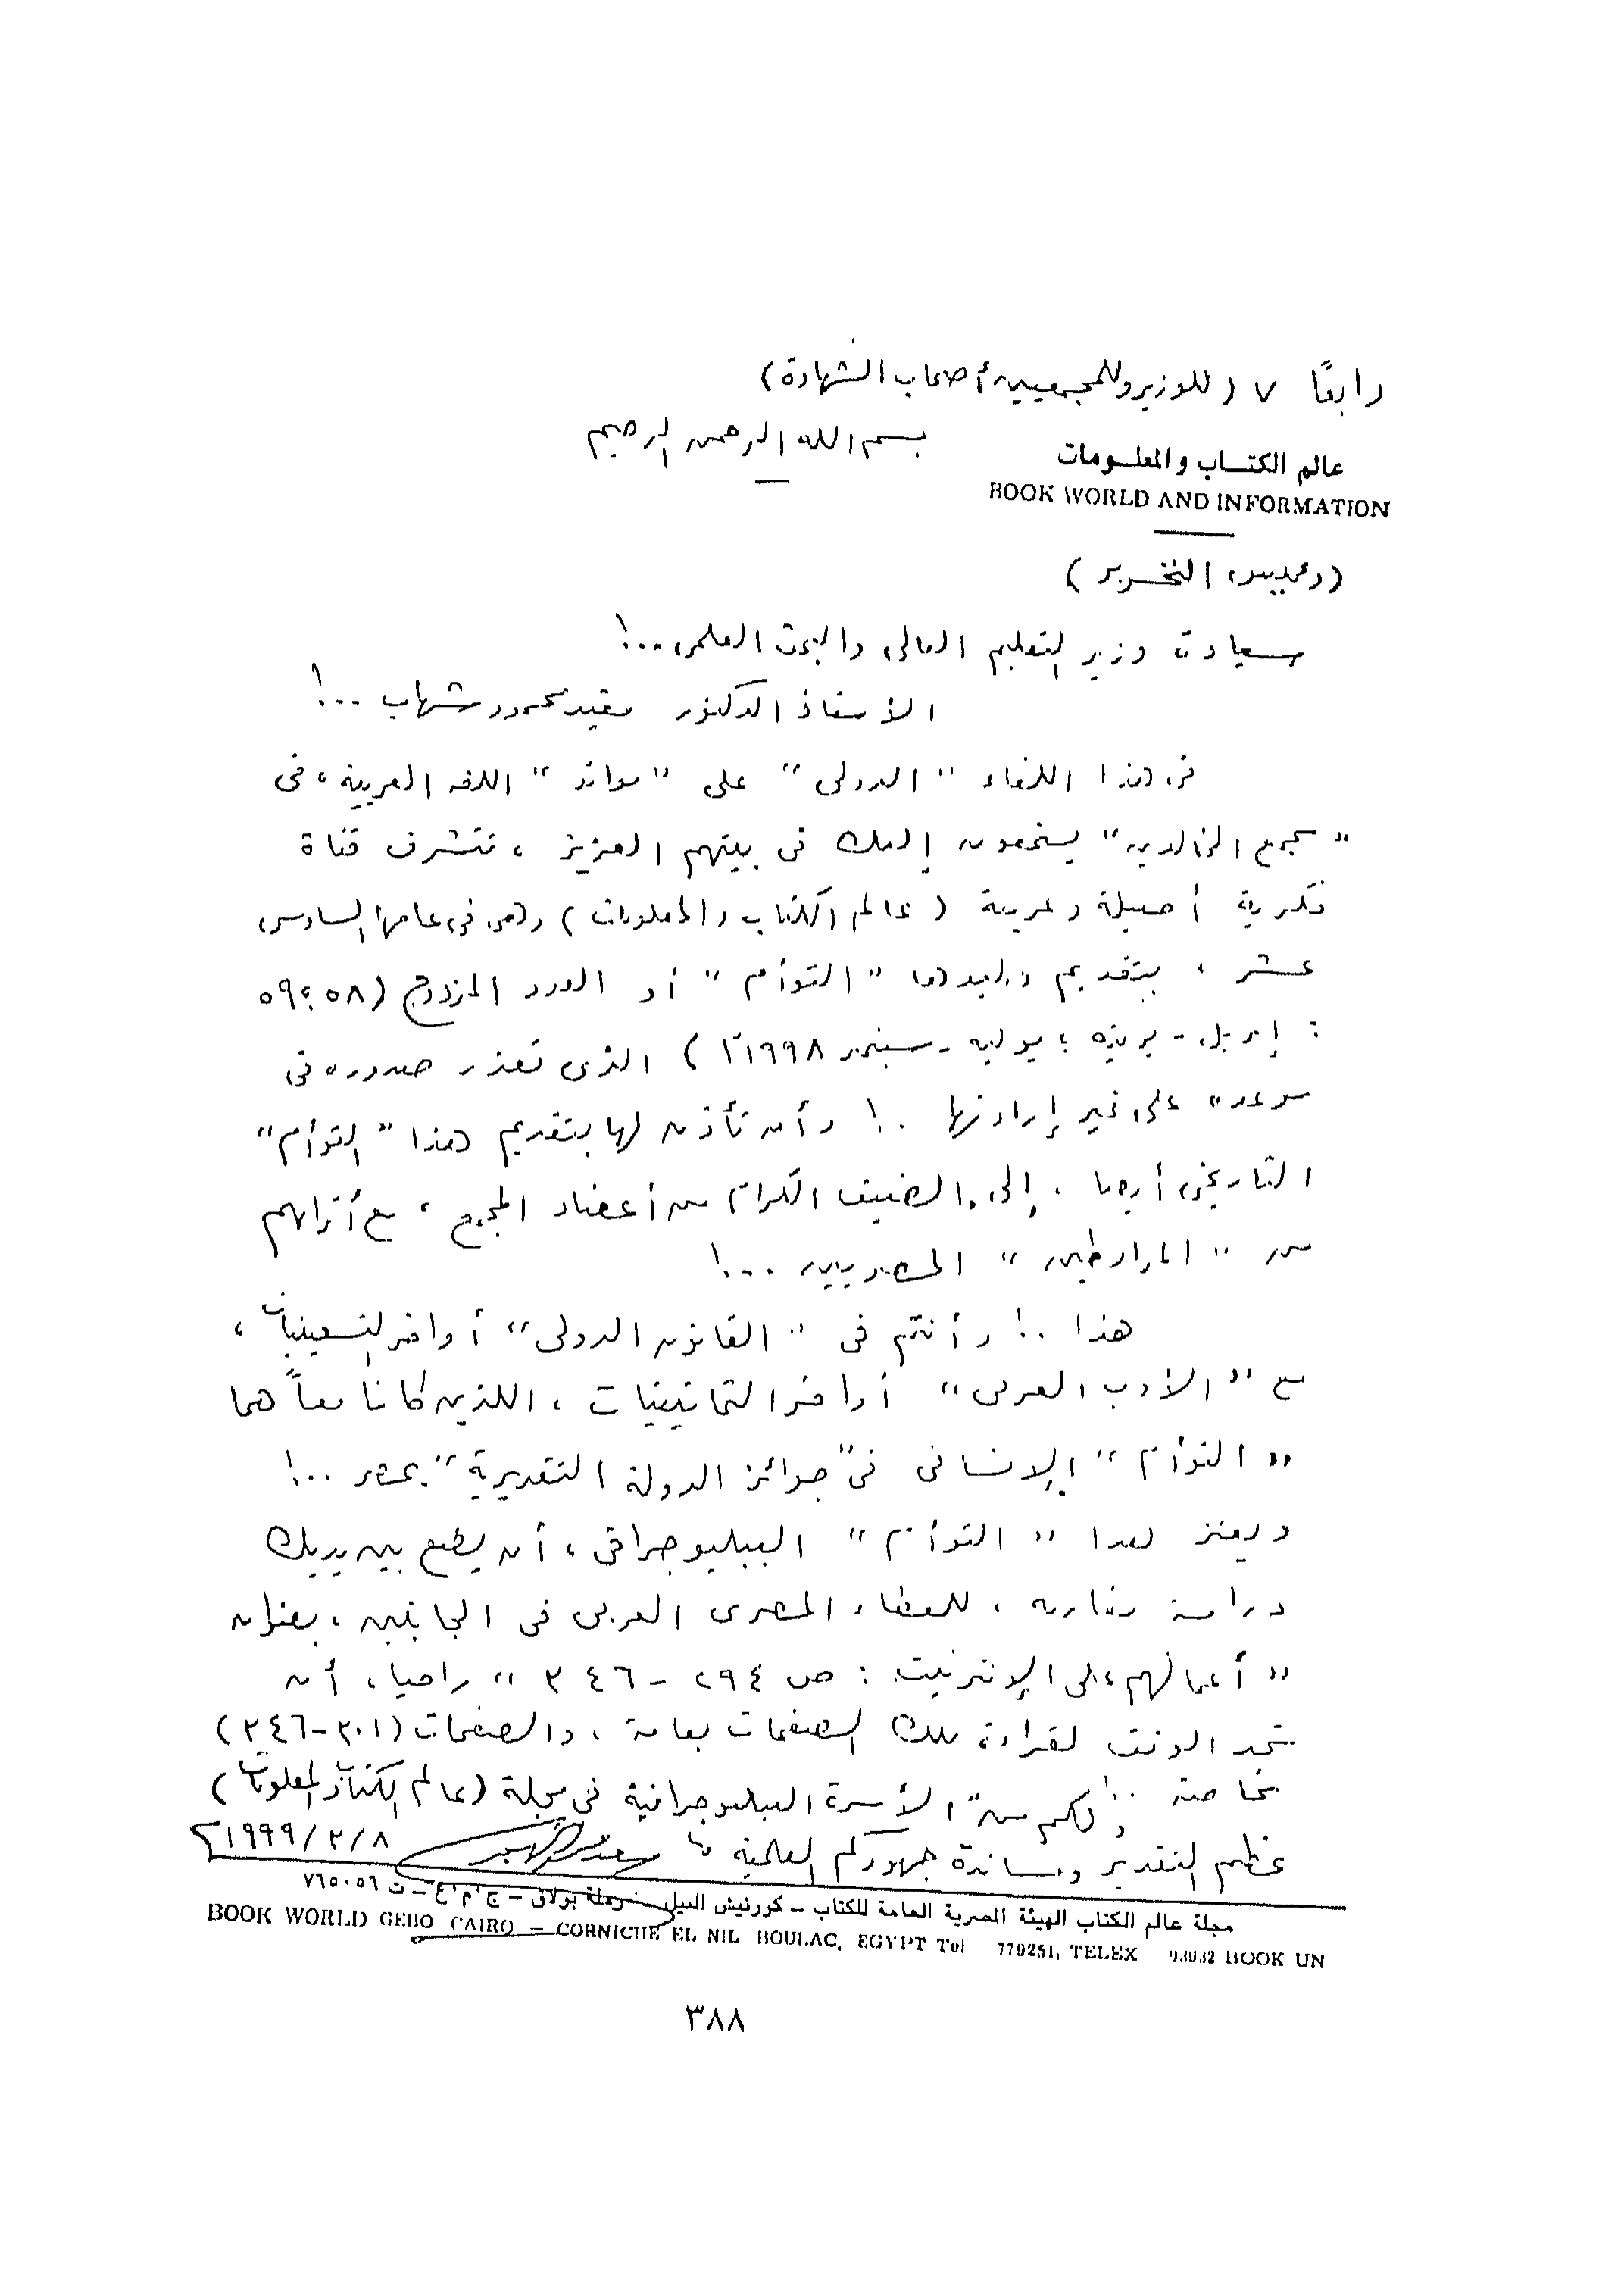 رابعًا ٧ (للوزير وللمجمعيين أصحاب الشهادة)
بسم الله الرحمن الرحيم
عالم الكتـاب والمعلـومات
BOOK WORLD AND INFORMATION
(رئيس التحرير)
سعادة وزير التعليم العالى والبحث العلمى ..!
الأستاذ الدكتور مفيد محمود شهاب ...!
فى هذا اللقاء "الدولى" على "موائد" اللغة العربية، فى
"مجمع الخالدين" يستمعون إليك فى بيتهم العزيز، تتشرف قناة
فكرية أصيلة وعربية (عالم الكتاب والمعلومات) وهى فى عامها السادس
عشر، بتقديم وليدها "التوأم" أو العدد المزدوج (٥٨؛ ٥٩
: إبريل - يونيه؛ يوليه - سبتمبر ١٩٩٨م) الذى تعذر صدوره فى
موعده على غير إرادتها ..! وأن تأذن لها بتقديم هذا "التوأم"
التاريخى أيضا، إلى الضيوف الكرام من أعضاء المجمع، مع أقرانهم
من "المرابطين" المصريين ...!
هذا ..! وأنتم فى "القانون الدولى" أواخر التسعينيات،
مع "الأدب العربى" أواخر الثمانينيات، اللذين كانا معاً هما
"التوأم" الإنسانى فى "جوائز الدولة التقديرية" بمصر ..!
ويعتز هذا "التوأم" الببليوجرافى، أن يضع بين يديك
دراسة مقارنة، للعطاء المصرى العربى فى الجانبين، بعنوان
"أعمالهم على الإنترنيت: ص ٢٩٤ - ٣٤٦" راجيا، أن
تجد الوقت لقراءة تلك الصفحات بعامة، والصفحات (٣٠١-٣٤٦)
بخاصة .. ولكم من "الأسرة الببليوجرافية فى مجلة (عالم الكتاب والمعلومات)
عظيم التقدير ومساندة جهودكم العلمية ١٩٩٩/٣/٨م
مجلة عالم الكتاب الهيئة المصرية العامة للكتاب - كورنيش النيل - رملة بولاق - ج٠م٠ع - ت ٧٦٥٠٥٦
BOOK WORLD GEBO CAIRO - CORNICHE EL NIL BOULAC, EGYPT Tel 779251, TELEX BOOK UN
٣٨٨